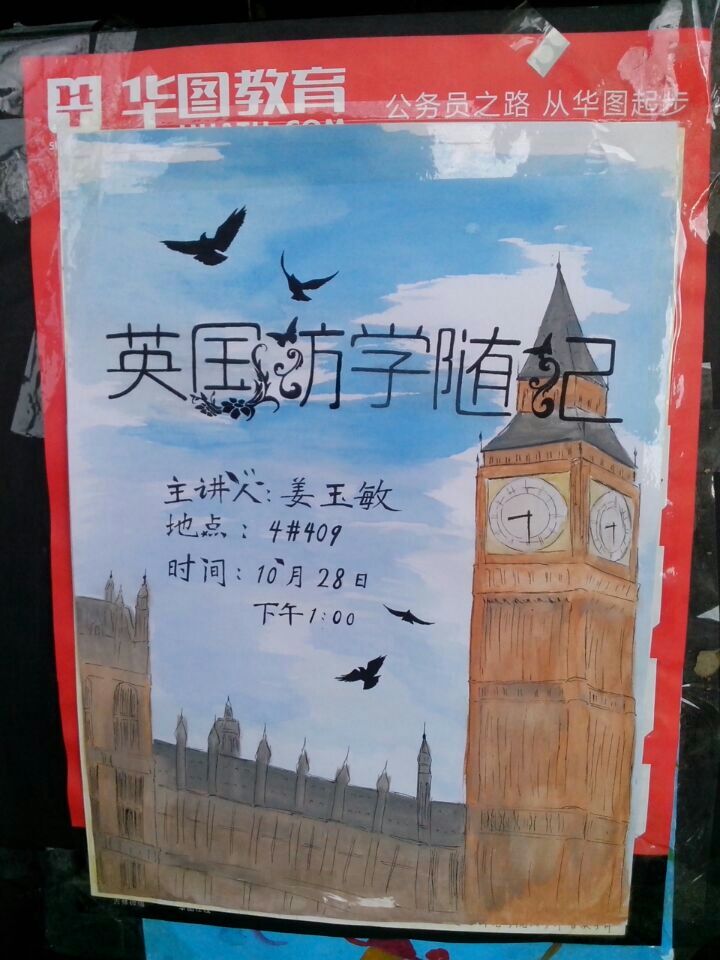 华图教育
公务员之路 从华图起步
英国访学随记
主讲人：姜玉敏
地点：4#409
时间：10月28日
下午1:00